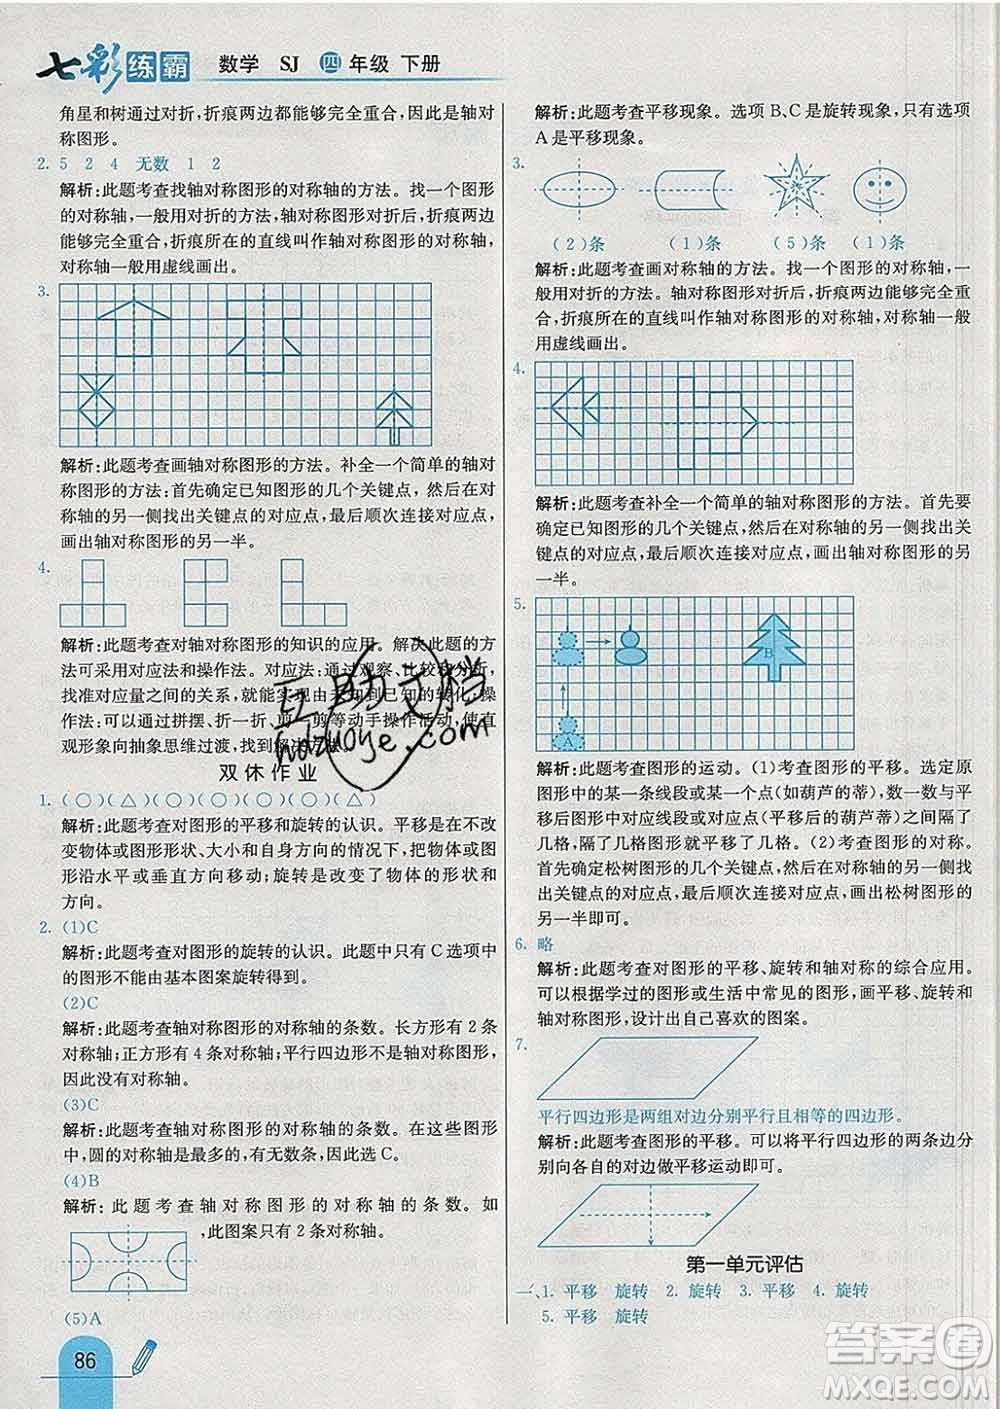 七彩练霸 数学 SJ 四年级 下册
角星和树通过对折,折痕两边都能够完全重合,因此是轴对
称图形。
2. 5 2 4 无数 1 2
解析:此题考查找轴对称图形的对称轴的方法。找一个图形
的对称轴,一般用对折的方法,轴对称图形对折后,折痕两边
能够完全重合,折痕所在的直线叫作轴对称图形的对称轴,
对称轴一般用虚线画出。
3.
解析:此题考查画轴对称图形的方法。补全一个简单的轴对
称图形:首先确定已知图形的几个关键点,然后在对
称轴的另一侧找出关键点的对应点,最后顺次连接对应点,
画出轴对称图形的另一半。
4.
解析:此题考查对轴对称图形的知识的应用。解决此题的方
法可采用对应法和操作法。对应法:通过观察、比较和分析,
找准对应量之间的关系,就能实现由未知到已知的转化;操作
法:可以通过拼摆、折一折、剪一剪等动手操作活动,使直
观形象向抽象思维过渡,找到解决方法。
双休作业
1. (○)(△)(○)(○)(○)(△)
解析:此题考查对图形的平移和旋转的认识。平移是在不改
变物体或图形形状、大小和自身方向的情况下,把物体或图
形沿水平或垂直方向移动;旋转是改变了物体的形状和
方向。
2. (1)C
解析:此题考查对图形的旋转的认识。此题中只有 C 选项中
的图形不能由基本图案旋转得到。
(2)C
解析:此题考查轴对称图形的对称轴的条数。长方形有 2 条
对称轴;正方形有 4 条对称轴;平行四边形不是轴对称图形,
因此没有对称轴。
(3)C
解析:此题考查轴对称图形的对称轴的条数。在这些图形
中,圆的对称轴是最多的,有无数条,因此选 C。
(4)B
解析:此题考查轴对称图形的对称轴的条数。如
,此图案只有 2 条对称轴。
(5)A
86
解析:此题考查平移现象。选项 B、C 是旋转现象,只有选项
A 是平移现象。
3.
(2)条 (1)条 (5)条 (1)条
解析:此题考查画对称轴的方法。找一个图形的对称轴,一
般用对折的方法。轴对称图形对折后,折痕两边能够完全重
合,折痕所在的直线叫作轴对称图形的对称轴,对称轴一般
用虚线画出。
4.
解析:此题考查补全一个简单的轴对称图形的方法。首先要
确定已知图形的几个关键点,然后在对称轴的另一侧找出关
键点的对应点,最后顺次连接对应点,画出轴对称图形的另
一半。
5.
B
A
解析:此题考查图形的运动。(1)考查图形的平移。选定原
图形中的某一条线段或某一点(如葫芦的蒂),看与平移后的
图形中对应线段或对应点(平移后的葫芦蒂)之间隔了
几格,隔了几格图形就平移了几格。(2)考查图形的对称。
首先确定松树图形的几个关键点,然后在对称轴的另一侧找
出关键点的对应点,最后顺次连接对应点,画出松树图形的
另一半即可。
6. 略
解析:此题考查对图形的平移、旋转和轴对称的综合应用。
可以根据学过的图形或生活中常见的图形,画平移、旋转和
轴对称图形,设计出自己喜欢的图案。
7.
平行四边形是两组对边分别平行且相等的四边形。
解析:此题考查图形的平移。可以将平行四边形的两条边分
别向各自的对边做平移运动即可。
第一单元评估
一、1. 平移 旋转 2. 旋转 3. 平移 4. 旋转
5. 平移 旋转
互助文档
hdzuoye.com
答案圈
MXQE.COM